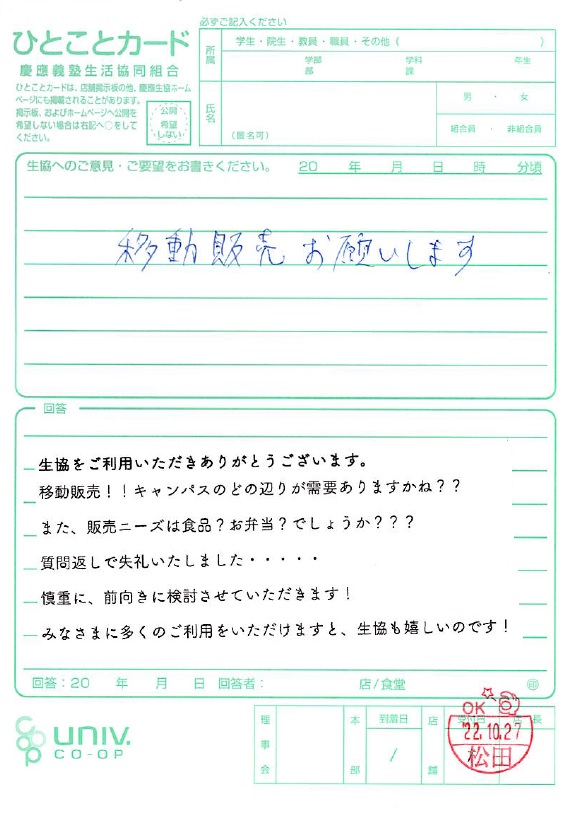 必ずご記入ください
ひとことカード
慶應義塾生活協同組合
ひとことカードは、店舗掲示板の他、慶應生協ホーム
ページにも掲載されることがあります。
掲示板、およびホームページへ公開を
希望しない場合は右記へ○をして
ください。
公開
希望
しない
所属
学生・院生・教員・職員・その他（ ）
学部 学科 年生
部 課
氏名
（匿名可）
男 ・ 女
組合員 ・ 非組合員
生協へのご意見・ご要望をお書きください。 20 年 月 日 時 分頃
移動販売お願いします
回答
生協をご利用いただきありがとうございます。
移動販売！！キャンパスのどの辺りが需要ありますかね？？
また、販売ニーズは食品？お弁当？でしょうか？？？
質問返しで失礼いたしました・・・・・
慎重に、前向きに検討させていただきます！
みなさまに多くのご利用をいただけますと、生協も嬉しいのです！
回答：20 年 月 日 回答者： 店/食堂 ㊞
coop
UNIV.
CO-OP
理事会
本部
到着日
/
店舗
受付日
店長
OK
'22.10.27
松田